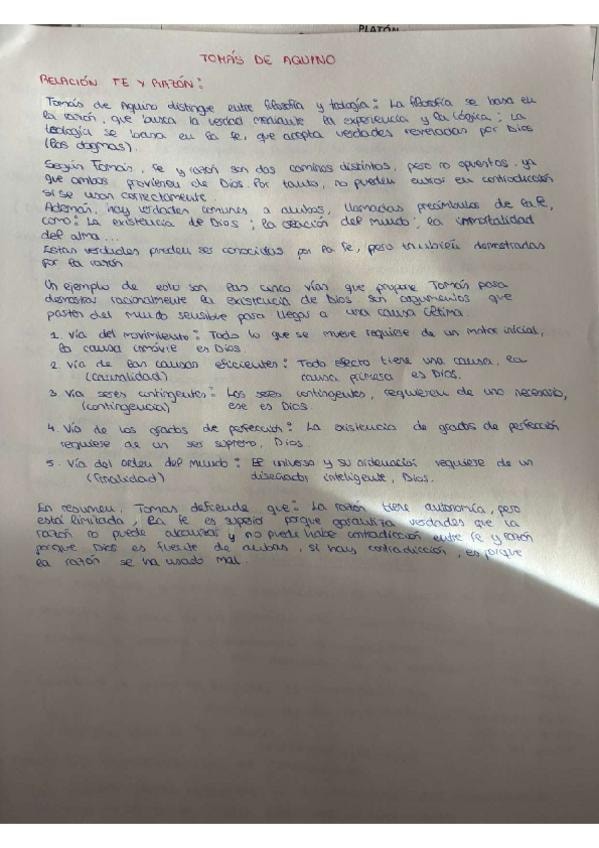 PLATÓN
TOMÁS DE AQUINO
RELACIÓN FE Y RAZÓN:
Tomás de Aquino distingue entre filosofía y teología: La filosofía se basa en
la razón, que busca la verdad mediante la experiencia y la lógica; La
teología se basa en la fe, que acepta verdades reveladas por Dios
(los dogmas).
Según Tomás, fe y razón son dos caminos distintos, pero no opuestos, ya
que ambos provienen de Dios. Por tanto, no pueden entrar en contradicción
si se usan correctamente.
Además, hay verdades comunes a ambos, llamadas preámbulos de la fe,
como: La existencia de Dios; la creación del mundo; la inmortalidad
del alma...
Estas verdades pueden ser conocidas por la fe, pero también demostradas
por la razón.
Un ejemplo de esto son las cinco vías que propone Tomás para
demostrar racionalmente la existencia de Dios son argumentos que
parten del mundo sensible para llegar a una causa última.
1. Vía del movimiento: Todo lo que se mueve requiere de un motor inicial,
la causa inmóvil es Dios.
2. Vía de las causas eficientes: Todo efecto tiene una causa, la
(causalidad) causa primera es Dios.
3. Vía seres contingentes: Los seres contingentes, requieren de uno necesario,
(contingencia) ese es Dios.
4. Vía de los grados de perfección: La existencia de grados de perfección
requiere de un ser supremo, Dios.
5. Vía del orden del mundo: El universo y su ordenación requiere de un
(finalidad) diseñador inteligente, Dios.
En resumen, Tomas defiende que: La razón tiene autonomía, pero
está limitada, la fe es superior porque garantiza verdades que la
razón no puede alcanzar y no puede haber contradicción entre fe y razón
porque Dios es fuente de ambas, si hay contradicción, es porque
la razón se ha usado mal.